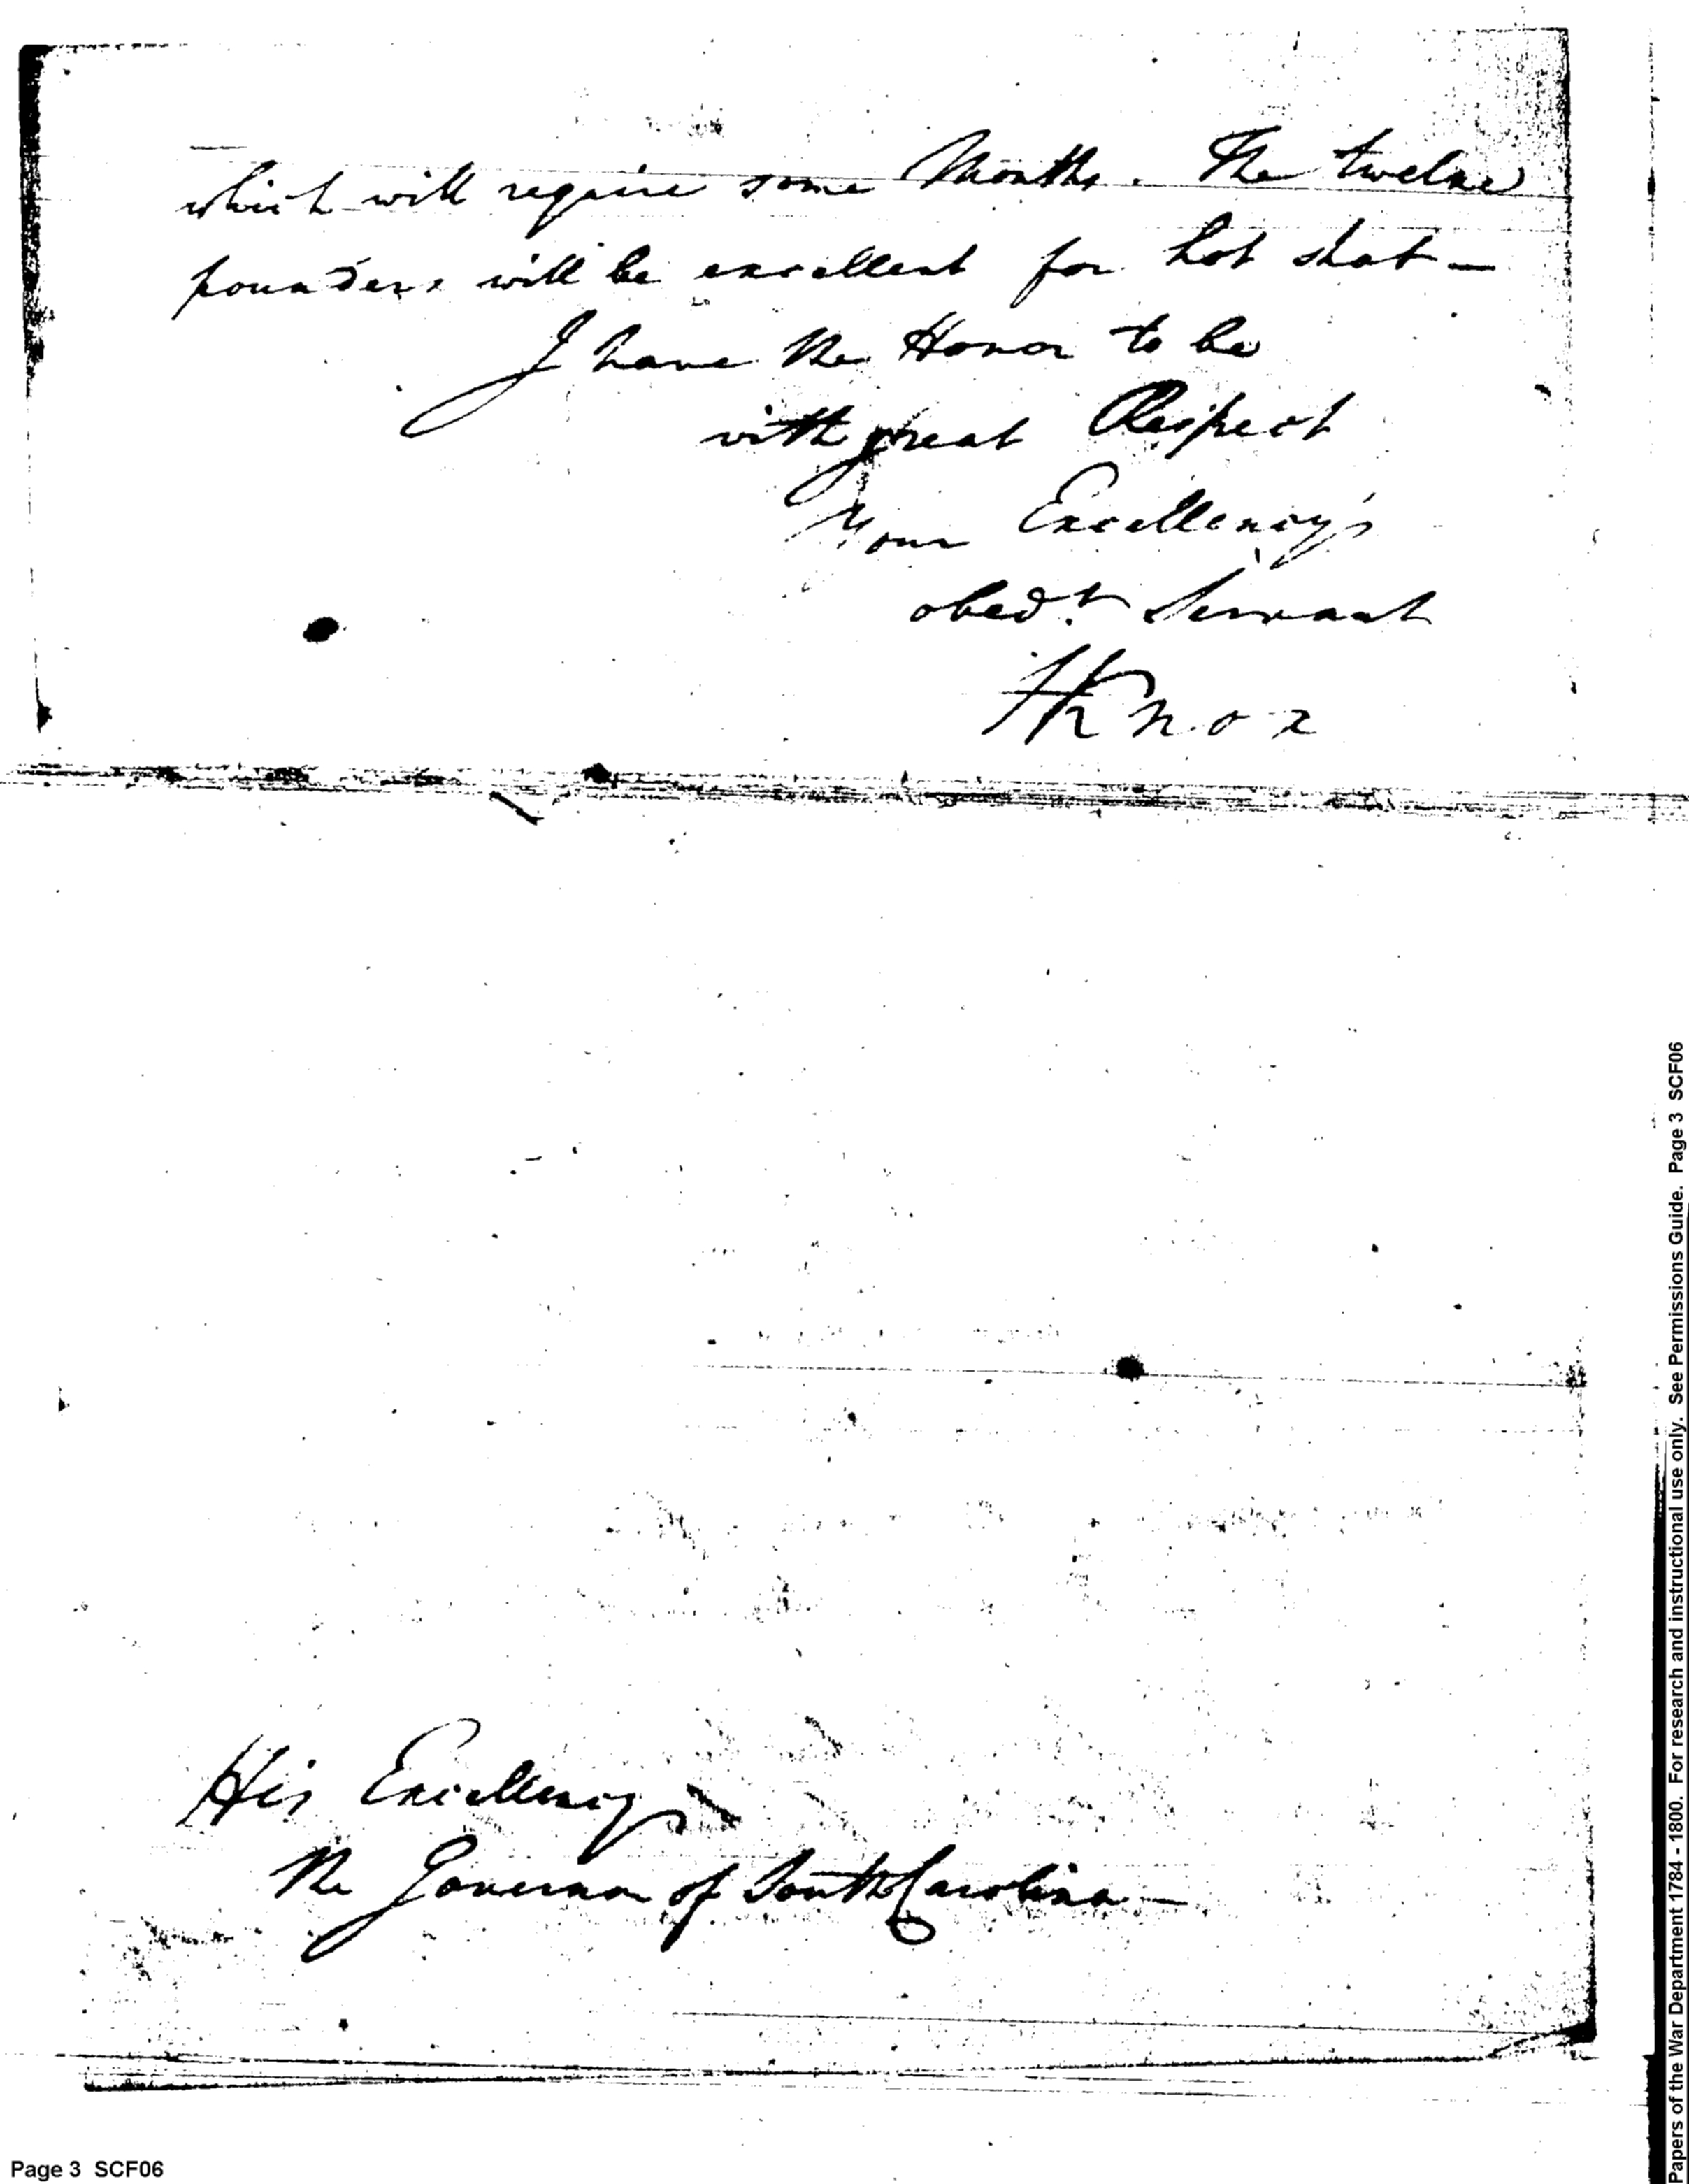 which will require some Months. The twelve
pounders will be excellent for hot shot —
I have the Honor to be
with great Respect
Your Excellency's
obedt. Servant
HKnox
His Excellency
the Governor of South Carolina —
Page 3 SCF06
Papers of the War Department 1784 - 1800. For research and instructional use only. See Permissions Guide. Page 3 SCF06